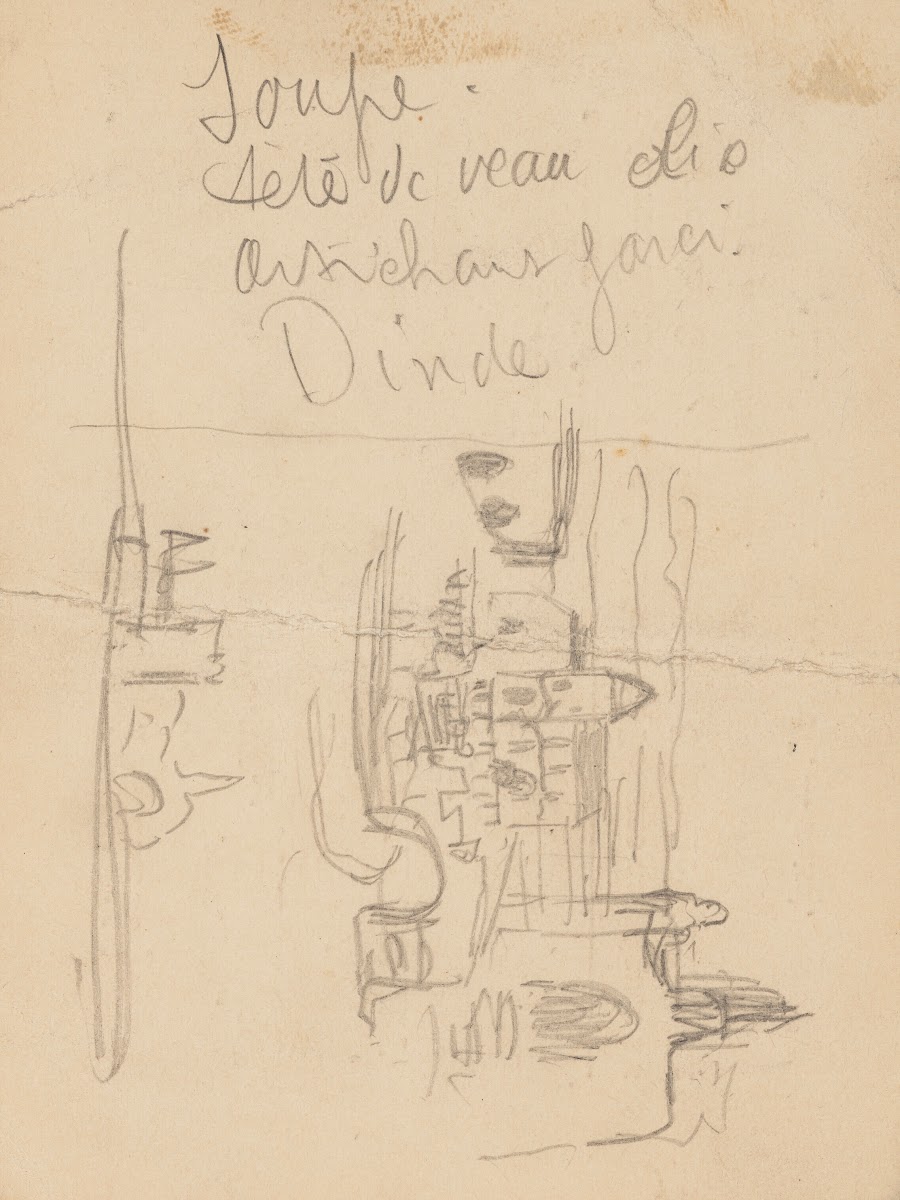 Soupe.
tete de veau
artichaur farci.
Dinde.